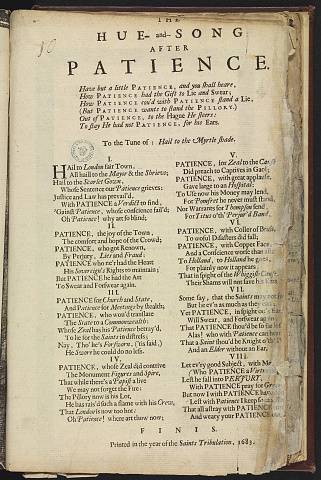 THE
HUE- and- SONG
AFTER
PATIENCE.
Have but a little PATIENCE, and you shall heare,
How PATIENCE had the Gift to Lie and Swear;
How PATIENCE cou'd with PATIENCE stand a Lie,
(But PATIENCE wants to stand the PILLORY.)
Out of PATIENCE, to the Hague He steers:
To stay He had not PATIENCE, for his Ears.
To the Tune of: Hail to the Myrtle shade.
I.
HAil to London fair Town,
All haill to the Mayor & the Shrieves;
Hail to the Scarlet Gown,
Whose Sentence our Patience grieves:
Justice and Law has prevail'd
With PATIENCE a Verdict to find,
'Gainst Patience, whose conscience fail'd;
Oh Patience! why art so blind;
II.
PATIENCE, the joy of the Town,
The comfort and hope of the Crowd;
PATIENCE, who got Renown,
By Perjury, Lies and Fraud:
PATIENCE who ne'r had the Heart
His Sovereign's Rights to maintain;
But PATIENCE he had the Art
To Swear and Forswear again.
III.
PATIENCE for Church and State,
And Patience for Meetings by stealth;
PATIENCE, who wou'd translate
The State to a Commonwealth:
Whose Zeal thus his Patience betray'd,
To lie for the Saints in distress;
Nay. Tho' he's Forsworn, ('tis said,)
He Swore he could do no less.
IV.
PATIENCE, whose Zeal did contrive
The Monument Figures and Spire,
That while there's a Papist alive
We may not forget the Fire:
The Pillory now is his Lot,
He has rais'd such a flame with his Crew,
That London is now too hot:
Oh Patience! where art thou now;
V.
PATIENCE, for Zeal to the Cause
Did preach to Captives in Gaol;
PATIENCE, with great applause,
Gave large to an Hospital:
To Use now his Money may lend,
For Pomfret he never must stand,
Nor Warrants for Thompson send
For Titus o'th' Perjur'd Band
VI.
PATIENCE, with Coller of Brass,
To woful Disasters did fall,
PATIENCE, with Copper Face,
And a Conscience worse than all
To Holland, to Holland he goes,
For plainly now it appears
That in spight of the Whiggish
Their Shams will not save his Ears.
VII.
Some say, that the Saints may not
But lie n's as much as they can
Yet PATIENCE, in spight
Will Swear, and Forswear
That PATIENCE thou'd be so
Alas! who with Patience can
That a Saint thou'd be Knight o'th'
And an Elder without an Ear,
VIII.
Let ev'ry good Subject, with
(Who PATIENCE a Vertue
Lest he fall into PERJURY,
With PATIENCE pray for
But now I with PATIENCE
Lest with Patience I keep
That all astray with PATIENCE
And weary your PATIENCE
FINIS.
Printed in the year of the Saints Tribulation, 1683.